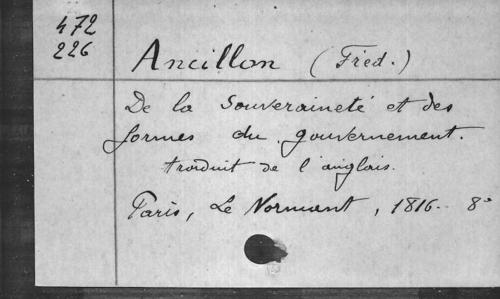 472
226
Ancillon (Fréd.)
De la Souveraineté et des
formes du gouvernement.
traduit de l'anglais.
Paris, Le Normant, 1816. 8°